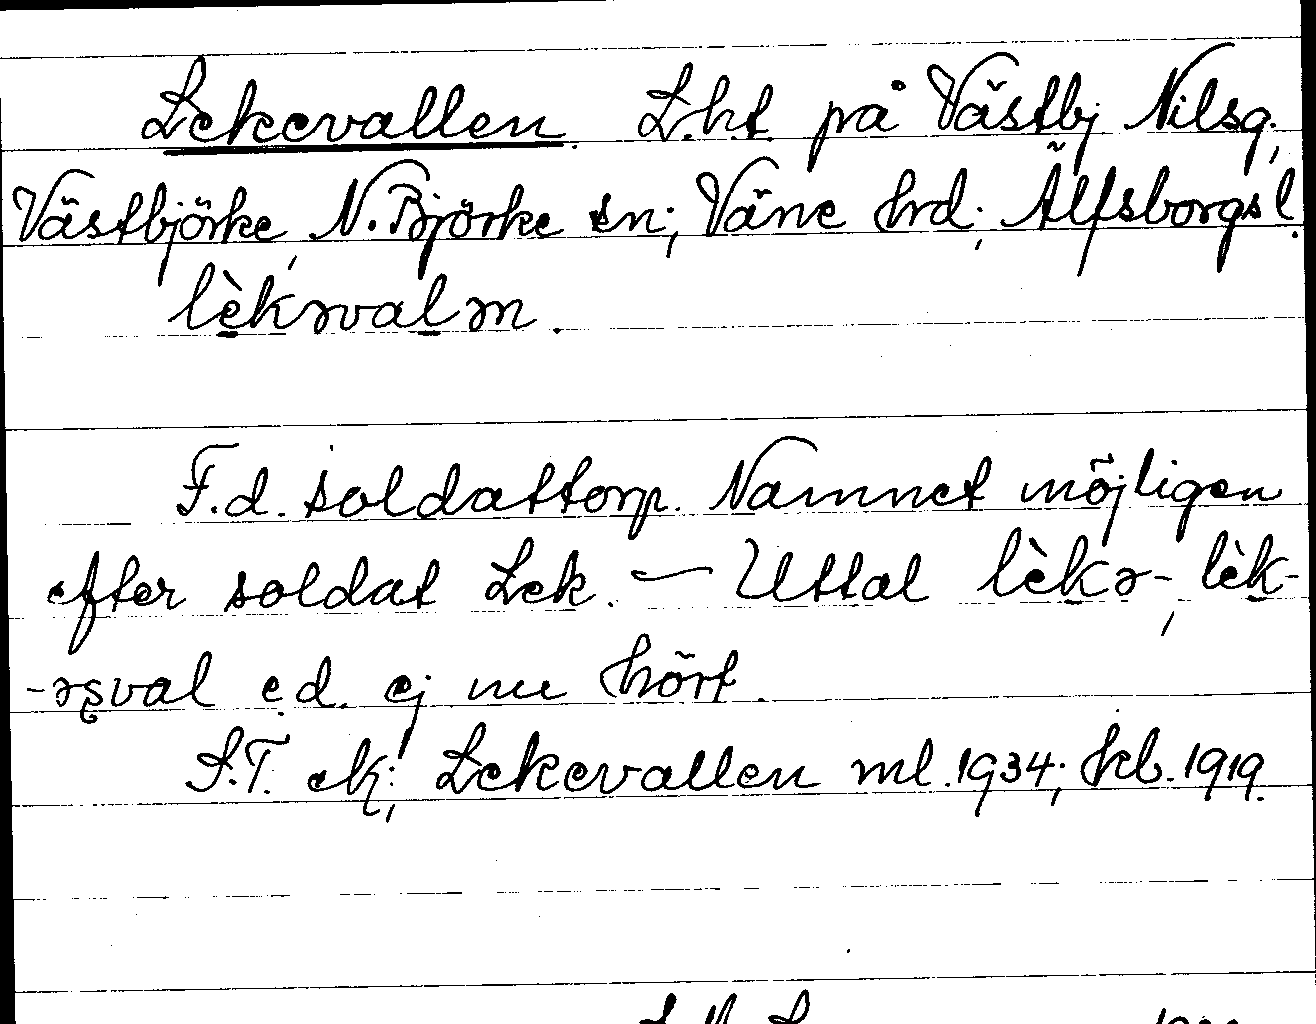 Lekevallen. L.ht. på Västbj Nilsg.,
Västbjörke, N. Björke sn; Väne hrd; Älfsborgs l.
lèkəvalən.
F.d. soldattorp. Namnet möjligen
efter soldat Lek. — Uttal lèkə-, lèk-
-əsval e.d. ej nu hört.
S.T. ek; Lekevallen ml. 1934; kb. 1919.